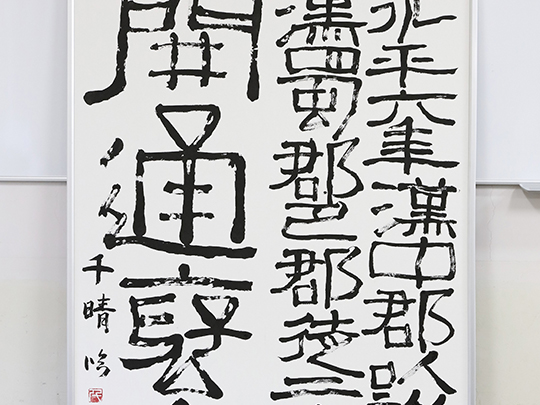 永平六年漢中郡
漢蜀郡巴郡徒二
開通褒
千晴臨